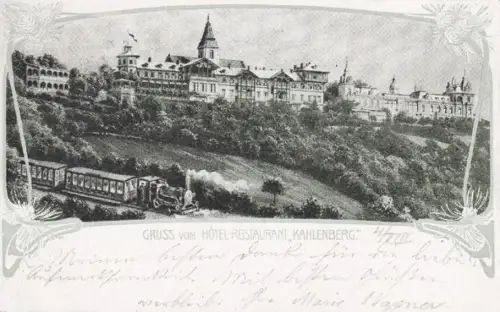 GRUSS VOM HÔTEL-RESTAURANT „KAHLENBERG."
Meinen besten Dank für die liebe
Aufmerksamkeit. Mit besten Grüßen
verbleibe Ihre Marie Wagner